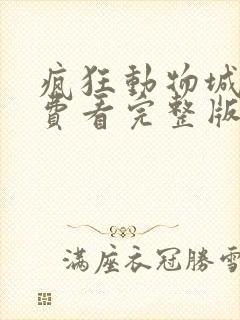 疯狂動物城
費看完整版
满座衣冠勝雪